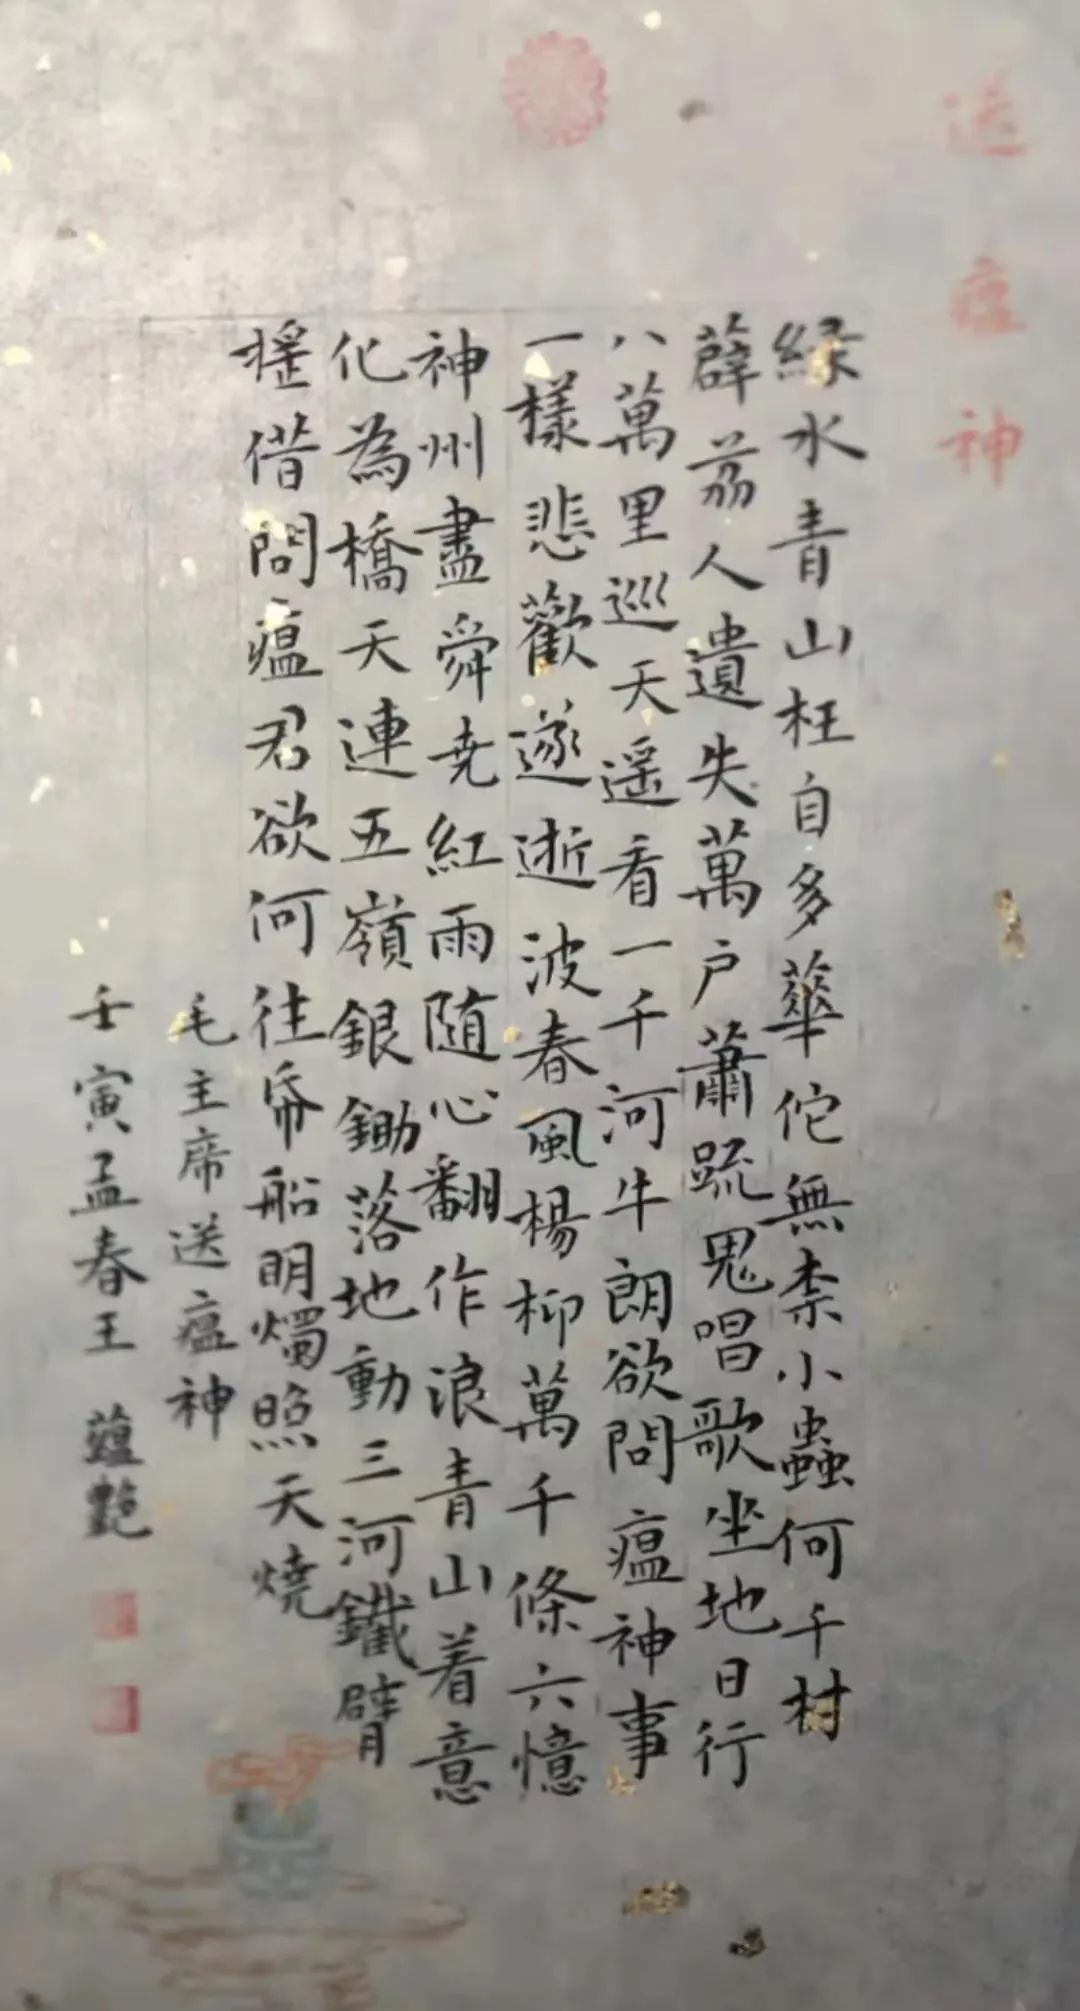 送瘟神
緑水青山枉自多華佗無柰小蟲何千村
薜荔人遺失萬户蕭疏鬼唱歌坐地日行
八萬里巡天遥看一千河牛朗欲問瘟神事
一樣悲歡逐逝波春風楊柳萬千條六憶
神州盡舜尭紅雨随心翻作浪青山着意
化為橋天連五嶺銀鋤落地動三河鐵臂
揺借問瘟君欲何往帋船明燭照天燒
毛主席送瘟神
壬寅孟春王蕴艶